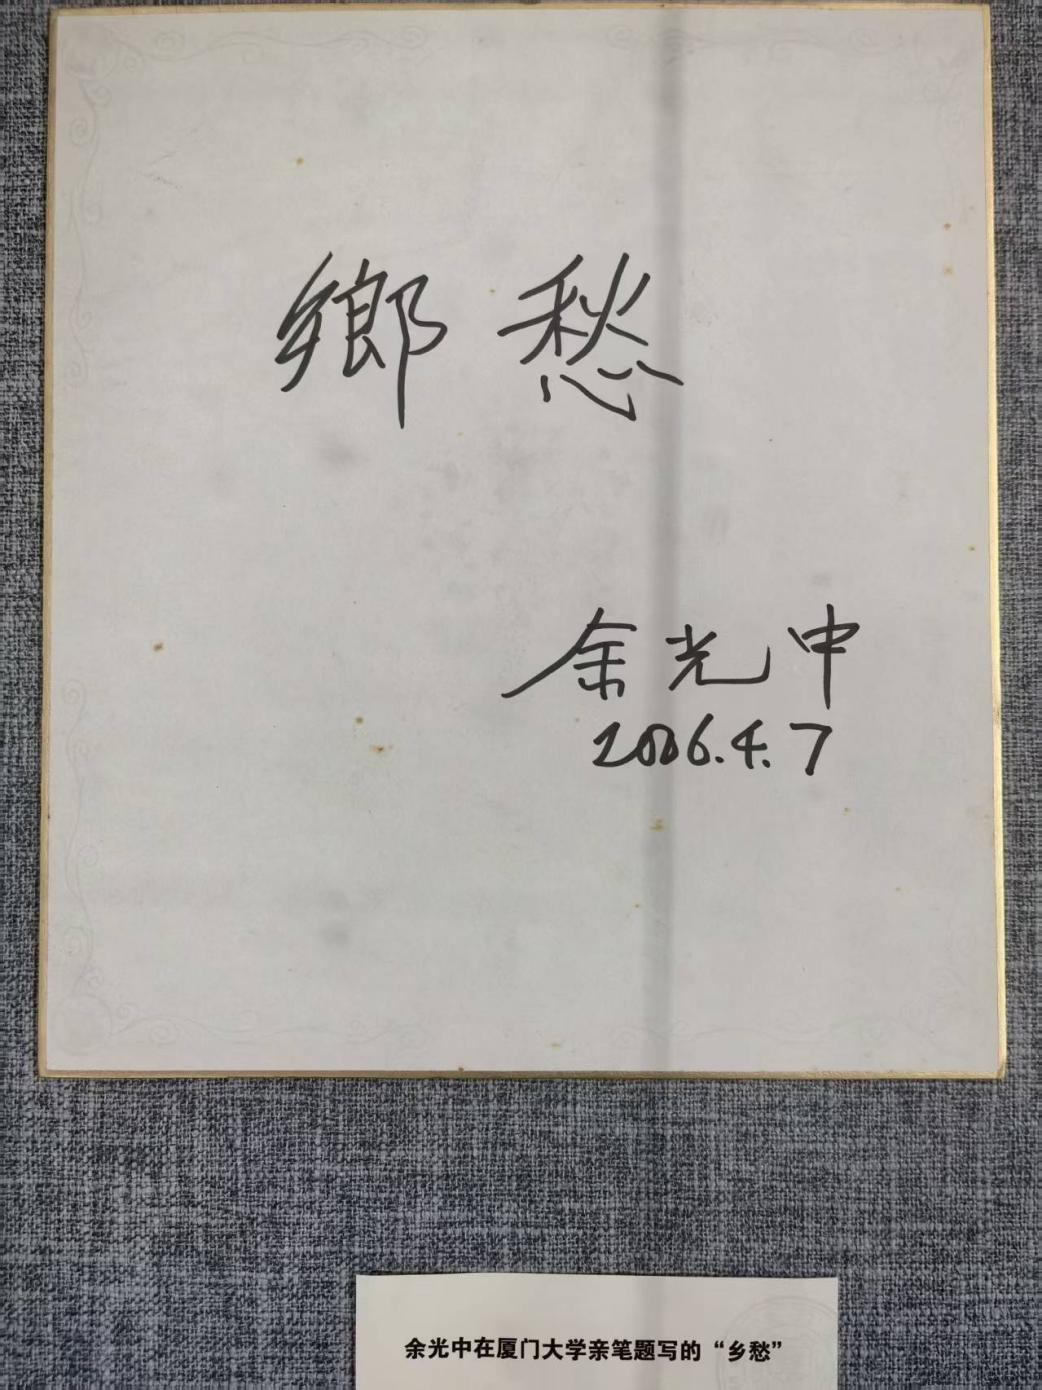 鄉愁
余光中
2006.4.7
余光中在厦门大学亲笔题写的“乡愁”